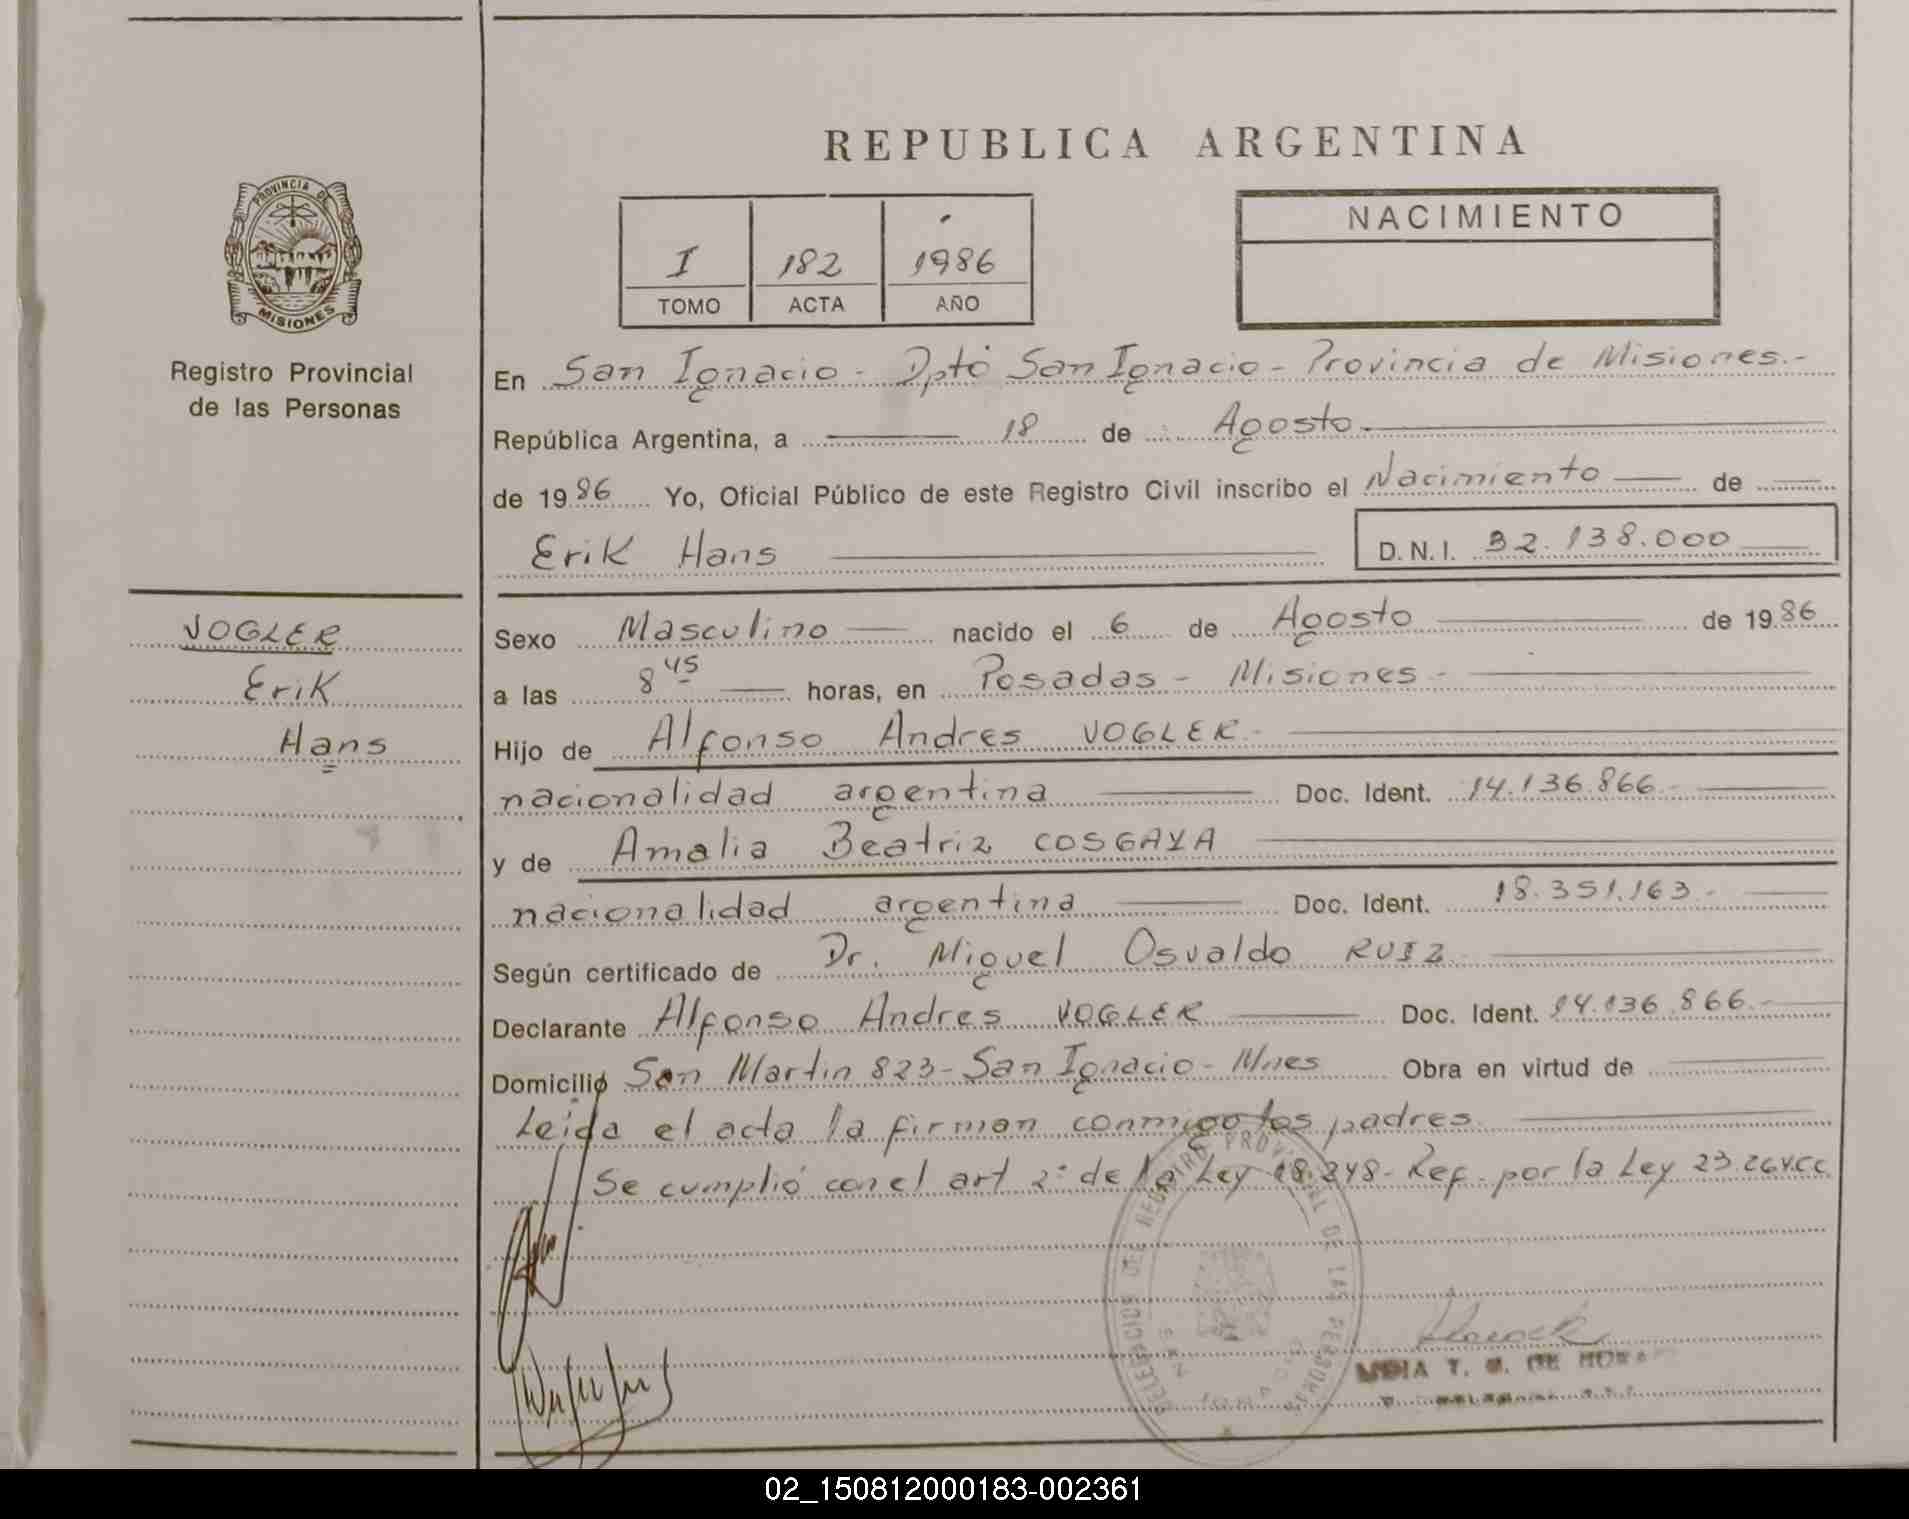 REPUBLICA ARGENTINA
PROVINCIA DE
MISIONES
Registro Provincial
de las Personas
I 182 1986
TOMO ACTA AÑO
NACIMIENTO
En San Ignacio - Dptó San Ignacio - Provincia de Misiones.-
República Argentina, a 18 de Agosto
de 1986 Yo, Oficial Público de este Registro Civil inscribo el Nacimiento de
Erik Hans D.N.I. 32.138.000
VOGLER
Erik
Hans
Sexo Masculino nacido el 6 de Agosto de 1986
a las 8 45 horas, en Posadas - Misiones -
Hijo de Alfonso Andres VOGLER -
nacionalidad argentina Doc. Ident. 14.136.866.-
y de Amalia Beatriz COSGAYA
nacionalidad argentina Doc. Ident. 18.351.163.-
Según certificado de Dr. Miguel Osvaldo RUIZ
Declarante Alfonso Andres VOGLER Doc. Ident. 14.136.866.-
Domicilio San Martin 823 - San Ignacio - Mnes Obra en virtud de
Leida el acta la firman conmigo los padres.
Se cumplió con el art 2° de la Ley 18.248 - Ref. por la Ley 23.264.CC.
REGISTRO PROVINCIAL DE LAS PERSONAS
T. DE
02_150812000183-002361